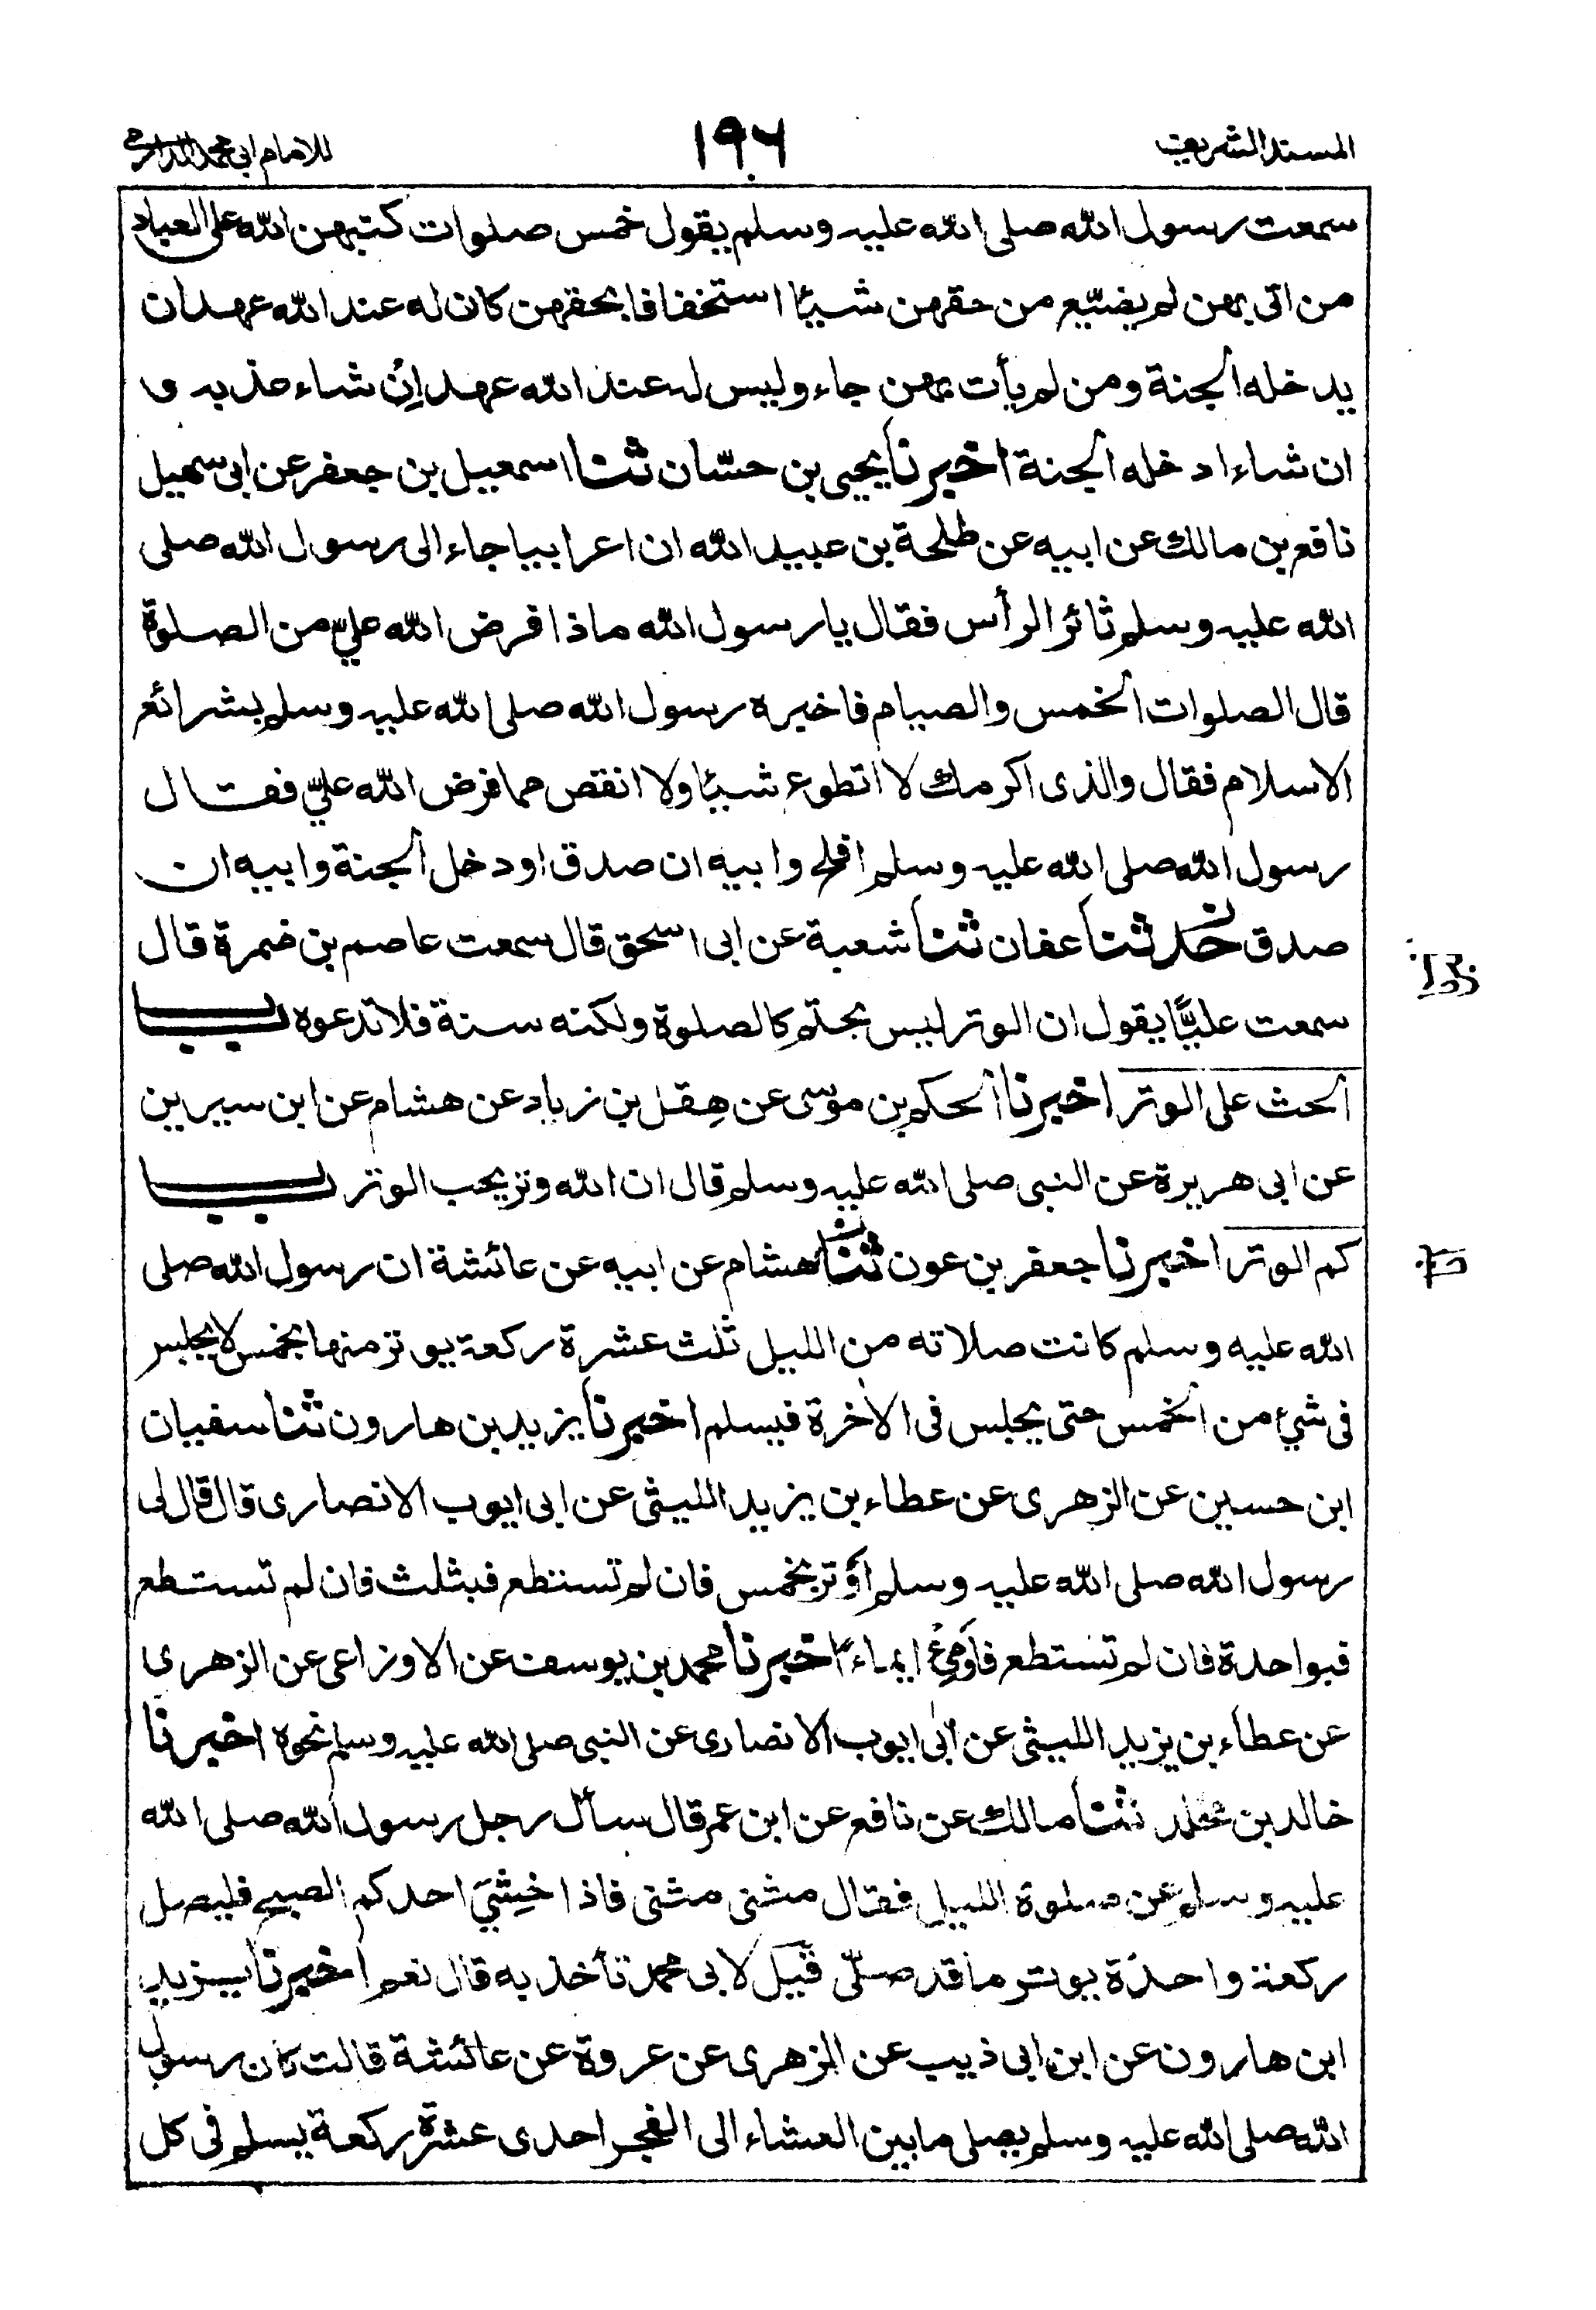 المسند الشريف
١٩٦
للامام ابى محمد الدارمى
سمعت رسول الله صلى الله عليه وسلم يقول خمس صلوات كتبهن الله على العباد
من اتى بهن لم يضيّع من حقهن شيئا استخفافا بحقهن كان له عند الله عهد ان
يدخله الجنة ومن لم يأت بهن جاء وليس له عند الله عهد اِن شاء عذبه و
ان شاء ادخله الجنة اخبرنا يحيى بن حسّان ثنا اسمعيل بن جعفر عن ابى سهيل
نافع بن مالك عن ابيه عن طلحة بن عبيد الله ان اعرابيا جاء الى رسول الله صلى
الله عليه وسلم ثائر الرأس فقال يا رسول الله ماذا فرض الله عليّ من الصلوة
قال الصلوات الخمس والصيام فاخبره رسول الله صلى الله عليه وسلم بشرائع
الاسلام فقال والذى اكرمك لا اتطوع شيئا ولا انقص مما فرض الله عليّ فقال
رسول الله صلى الله عليه وسلم افلح وابيه ان صدق او دخل الجنة وابيه ان
صدق حدثنا عفان ثنا شعبة عن ابى اسحق قال سمعت عاصم بن ضمرة قال
سمعت عليًّا يقول ان الوتر ليس بحتم كالصلوة ولكنه سنة فلا تدعوه باب
الحث على الوتر اخبرنا الحكم بن موسى عن هِقل بن زياد عن هشام عن ابن سيرين
عن ابى هريرة عن النبى صلى الله عليه وسلم قال ان الله وتر يحب الوتر باب
كم الوتر اخبرنا جعفر بن عون ثنا هشام عن ابيه عن عائشة ان رسول الله صلى
الله عليه وسلم كانت صلاته من الليل ثلث عشرة ركعة يوتر منها بخمس لا يجلس
فى شئ من الخمس حتى يجلس فى الاخرة فيسلم اخبرنا يزيد بن هارون ثنا سفيان
ابن حسين عن الزهرى عن عطاء بن يزيد الليثى عن ابى ايوب الانصارى قال قال لى
رسول الله صلى الله عليه وسلم أوتر بخمس فان لم تستطع فبثلث فان لم تستطع
فبواحدة فان لم تستطع فأومئ ايماءً اخبرنا محمد بن يوسف عن الاوزاعى عن الزهرى
عن عطاء بن يزيد الليثى عن ابى ايوب الانصارى عن النبى صلى الله عليه وسلم نحوه اخبرنا
خالد بن مخلد ثنا مالك عن نافع عن ابن عمر قال سأل رجل رسول الله صلى الله
عليه وسلم عن صلوة الليل فقال مثنى مثنى فاذا خشِيَ احدكم الصبح فليصل
ركعة واحدة يوتر ما قد صلّى قيل لابى محمد تأخذ به قال نعم اخبرنا يزيد
ابن هارون عن ابن ابى ذيب عن الزهرى عن عروة عن عائشة قالت كان رسول
الله صلى الله عليه وسلم يصلى ما بين العشاء الى الفجر احدى عشرة ركعة يسلم فى كل